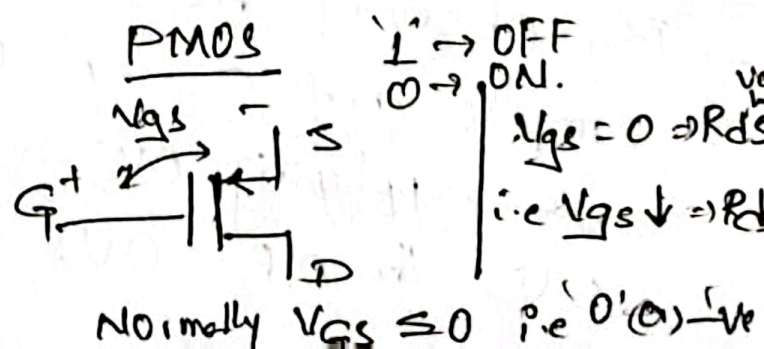 PMOS
'1' → OFF
0 → ON.
Vgs
-
S
G +
D
Vgs = 0 ⇒ Rds
i.e Vgs ↓ ⇒ Rd
Normally VGS ≤ 0 i.e '0' (or) -ve